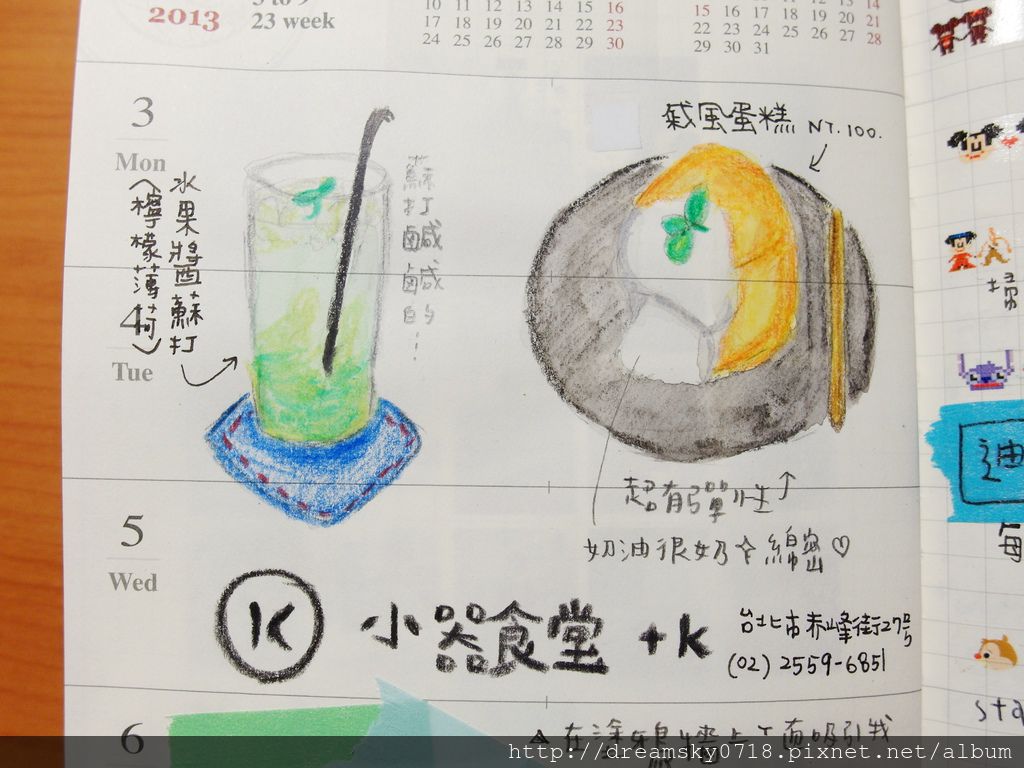 2013
23 week
10 11 12 13 14 15 16
17 18 19 20 21 22 23
24 25 26 27 28 29 30
15 16 17 18 19 20 21
22 23 24 25 26 27 28
29 30 31
3
Mon
水果醬蘇打
(檸檬薄荷)
蘇打鹹鹹的!
戚風蛋糕 NT.100.
4
Tue
超有彈性
奶油很奶☆綿密♡
掃
5
Wed
K
小器食堂 +K
台北市赤峰街27號
(02) 2559-6851
每
sta
6
在塗鴉牆上一直吸引我
http://dreamsky0718.pixnet.net/album